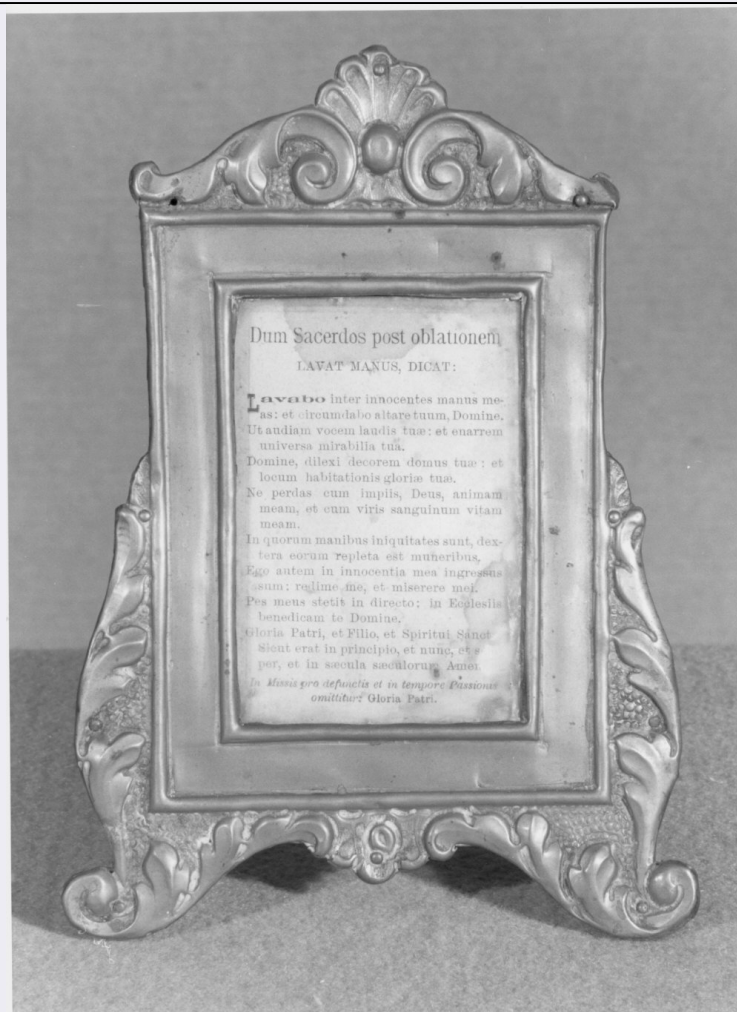 Dum Sacerdos post oblationem
LAVAT MANUS, DICAT:
Lavabo inter innocentes manus me-
as: et circumdabo altare tuum, Domine.
Ut audiam vocem laudis tuæ: et enarrem
universa mirabilia tua.
Domine, dilexi decorem domus tuæ: et
locum habitationis gloriæ tuæ.
Ne perdas cum impiis, Deus, animam
meam, et cum viris sanguinum vitam
meam.
In quorum manibus iniquitates sunt, dex-
tera eorum repleta est muneribus.
Ego autem in innocentia mea ingressus
sum: redime me, et miserere mei.
Pes meus stetit in directo: in Ecclesiis
benedicam te Domine.
Gloria Patri, et Filio, et Spiritui Sanct
Sicut erat in principio, et nunc, et s
per, et in sæcula sæculorum Amen
In Missis pro defunctis et in tempore Passionis
omittitur: Gloria Patri.